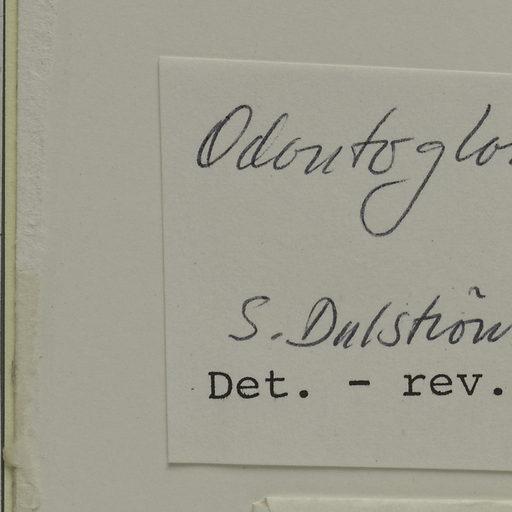 Odontoglo
S. Dalström
Det. - rev.